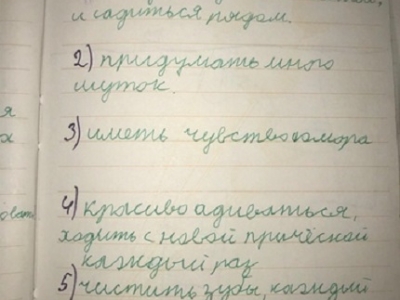 и садиться рядом.
2) придумать много
шуток.
я
3) иметь чувство юмора
х
4) красиво адиваться,
ходить с новой причёской
каждый раз
5) чистить зубы, каждый